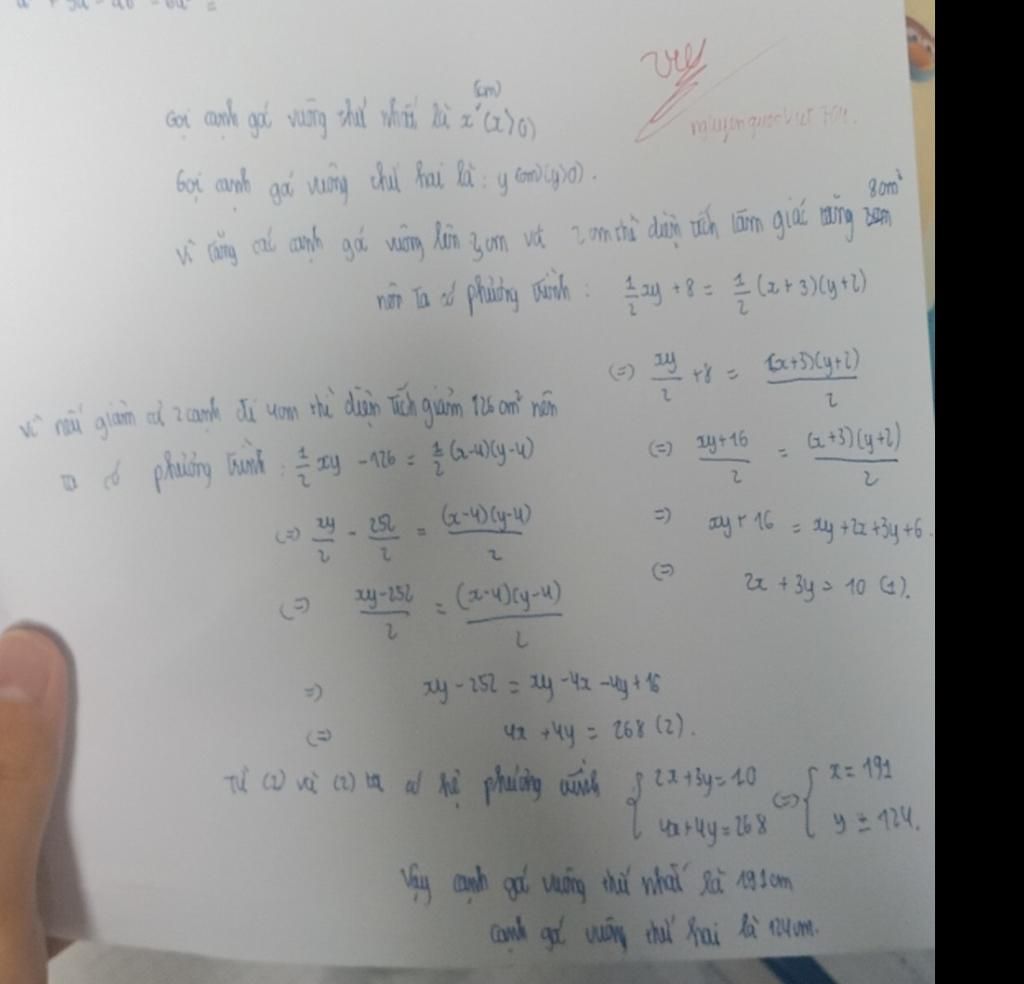 Gọi cạnh góc vuông thứ nhất là x (cm) (x>0)
Gọi cạnh góc vuông thứ hai là: y (cm) (y>0).
vì tăng các cạnh góc vuông lên 3cm và 2cm thì diện tích tam giác tăng 8cm²
nên ta có phương trình: 1/2 xy + 8 = 1/2 (x+3)(y+2)
(=) xy/2 + 8 = (x+3)(y+2)/2
(=) (xy+16)/2 = (x+3)(y+2)/2
=) xy + 16 = xy+2x+3y+6.
(=) 2x + 3y = 10 (1).
vì nếu giảm cả 2 cạnh đi 4cm thì diện tích giảm 126 cm² nên
ta có phương trình: 1/2 xy - 126 = 1/2 (x-4)(y-4)
(=) xy/2 - 252/2 = (x-4)(y-4)/2
(=) (xy-252)/2 = (x-4)(y-4)/2
=) xy - 252 = xy - 4x - 4y + 16
(=) 4x + 4y = 268 (2).
Từ (1) và (2) ta có hệ phương trình { 2x+3y=10 4x+4y=268 (=) { x = 191 y = 124.
Vậy cạnh góc vuông thứ nhất là 191cm
cạnh góc vuông thứ hai là 124cm.